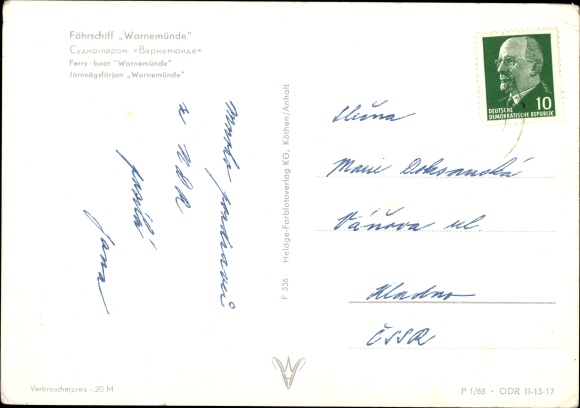 Fährschiff „Warnemünde"
Судно-паром «Варнемюнде»
Ferry-boat "Warnemünde"
Järnvägsfärjan „Warnemünde"
pozdravů
z NDR
posílá
Jana
F 336 Heldge-Farbfotoverlag KG, Köthen/Anhalt
10
DEUTSCHE
DEMOKRATISCHE REPUBLIK
Slečna
Marie Doksanská
Váňova ul.
Kladno
ČSSR
Verbraucherpreis -.20 M
P 1/68 • ODR II-15-17